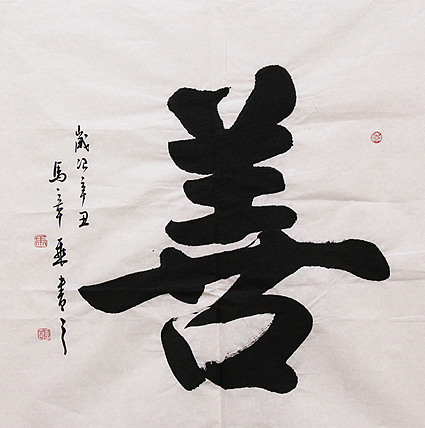 善
歲次辛丑
馬章乘書之